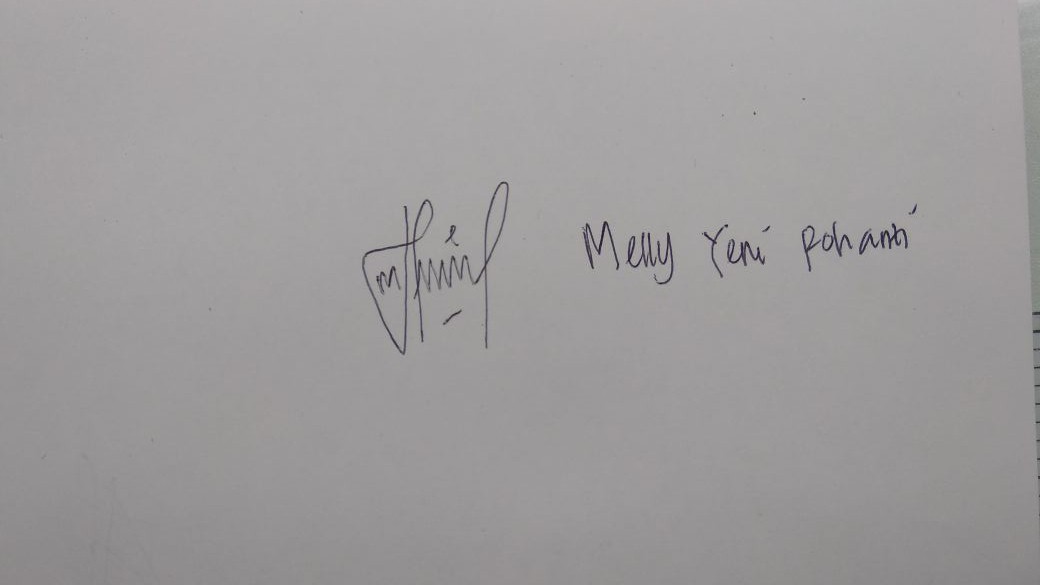 Melly Yeni Rohanti